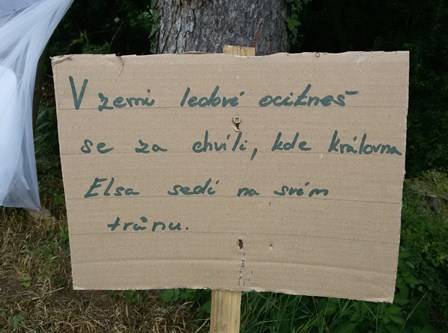 V zemi ledové ocitneš
se za chvíli, kde královna
Elsa sedí na svém
trůnu.